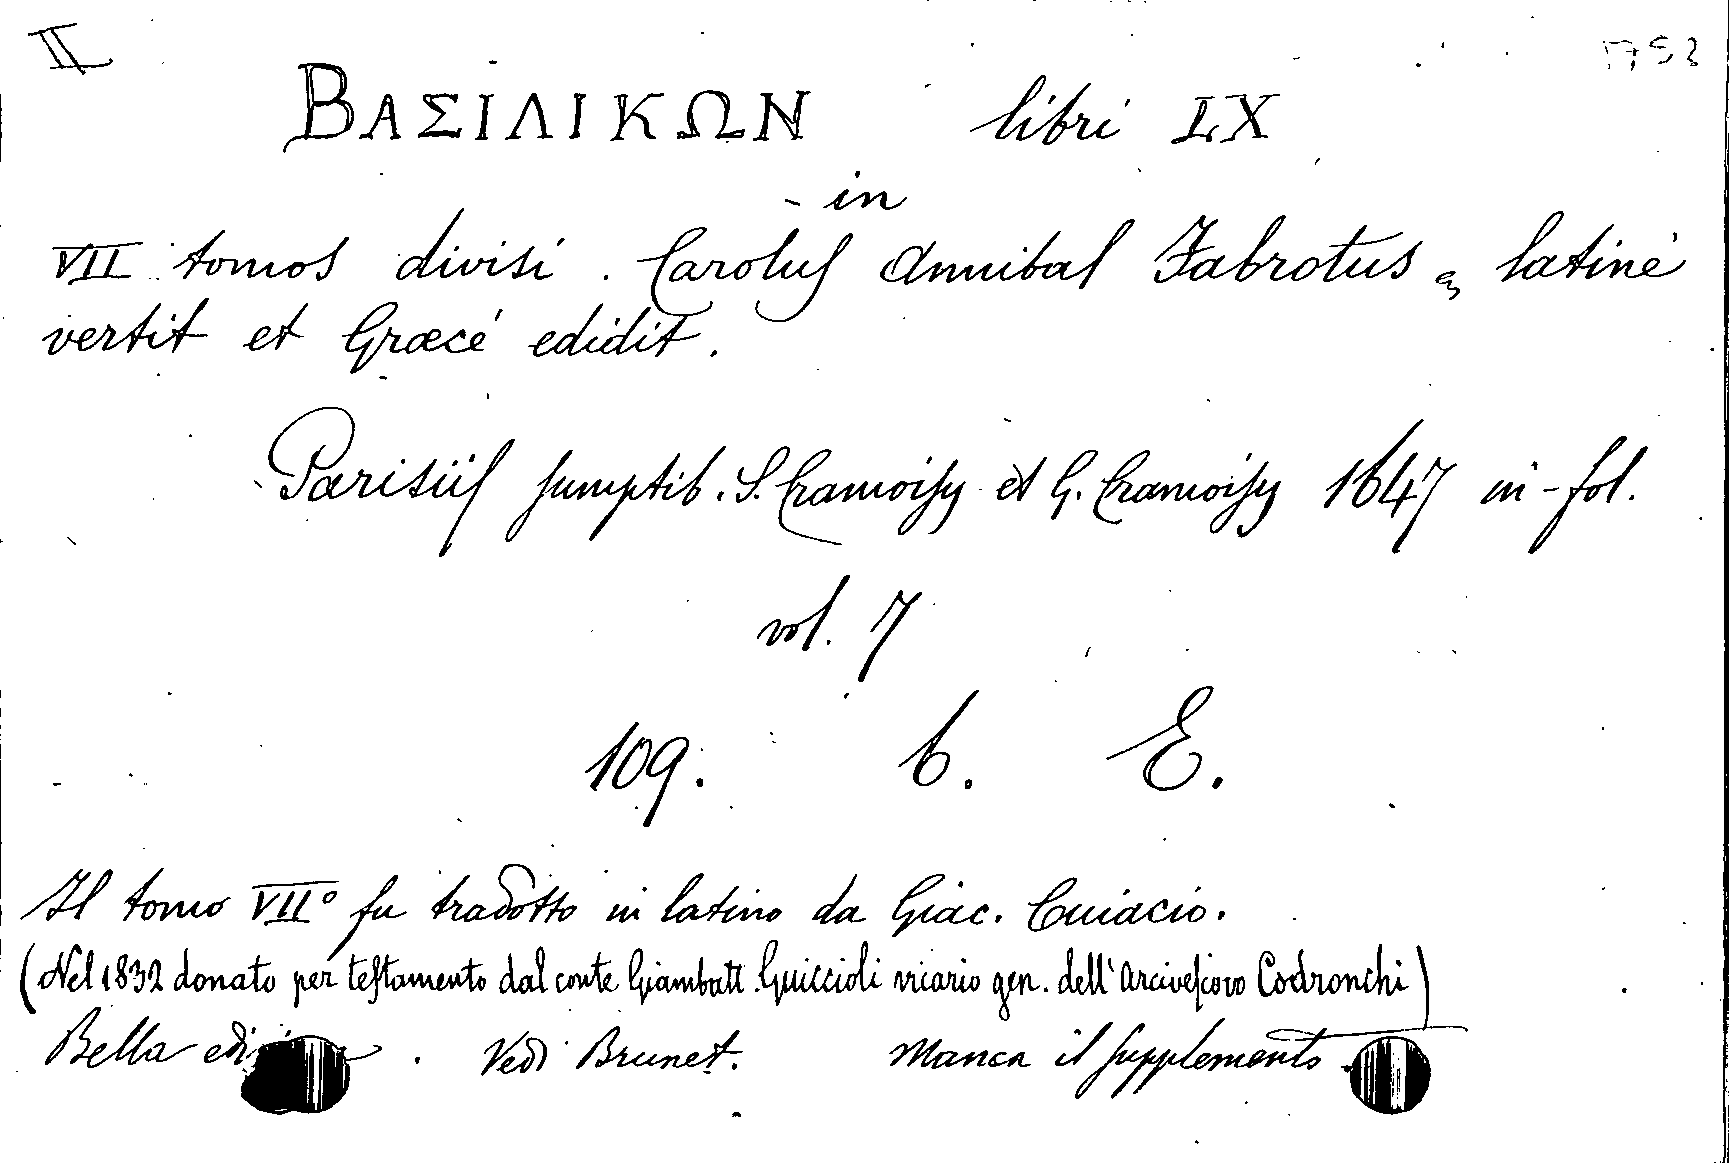 II 1753
ΒΑΣΙΛΙΚΩΝ libri LX
in
VII tomos divisi. Carolus Annibal Fabrotus latinè
vertit et Græcé edidit.
Parisiis sumptib. S. Cramoisy et G. Cramoisy 1647 in-fol.
vol. 7
109. b. E.
Il tomo VII° fu tradotto in latino da Giac. Cuiacio.
(Nel 1832 donato per testamento dal conte Giambatt. Guiccioli vicario gen. dell'Arcivescovo Codronchi)
Bella . Vedi Brunet. Manca il supplemento